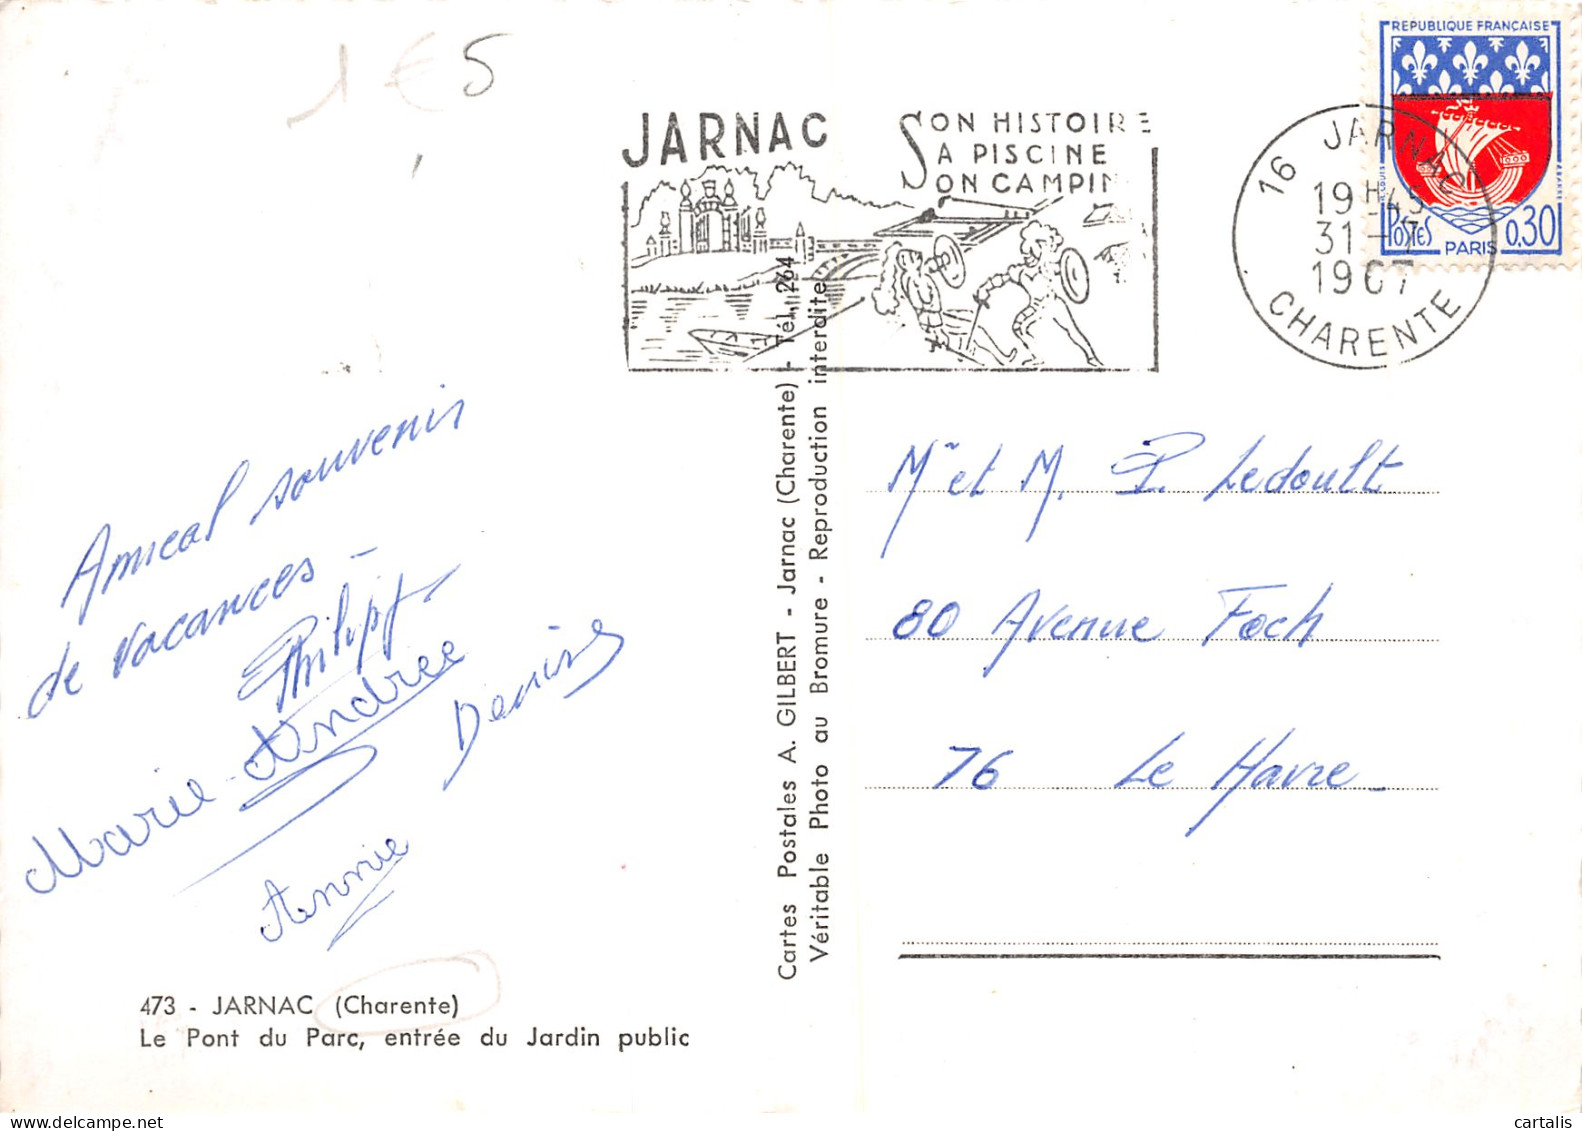 1€5
JARNAC
SON HISTOIRE
SA PISCINE
SON CAMPIN
REPUBLIQUE FRANÇAISE
POSTES
PARIS
0,30
16 JARNAC
19H45
31-7
1967
CHARENTE
Amical souvenir
de vacances -
Philippe
Marie-Andree
Denise
Annie
473 - JARNAC (Charente)
Le Pont du Parc, entrée du Jardin public
Cartes Postales A. GILBERT - Jarnac (Charente) - Tél. 264
Véritable Photo au Bromure - Reproduction interdite
Mr et M. P. Ledoult
80 Avenue Foch
76 Le Havre_
cartalis